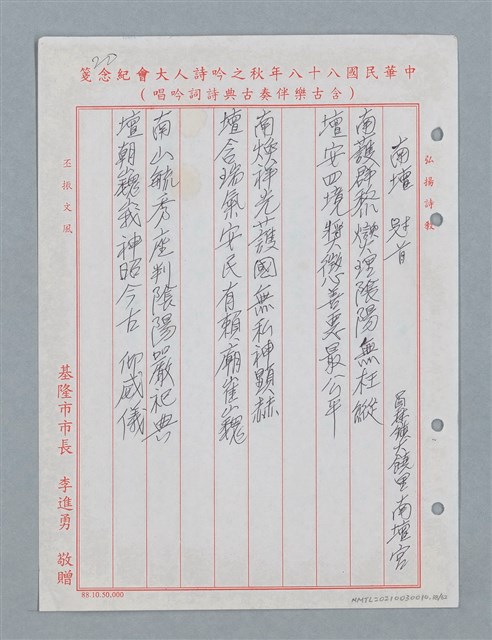 20
中華民國八十八年秋之吟詩人大會紀念箋
（含古樂伴奏古典詩詞吟唱）
弘揚詩教
南壇 冠首
大鎮里南壇宮
南護群黎燮理陰陽無枉縱
壇安四境獎懲善惡最公平
南煥祥光護國無私神顯赫
壇含瑞氣安民有賴廟崔巍
南山毓秀座判陰陽嚴祀典
壇朝巍峩神昭今古仰威儀
丕振文風
基隆市市長 李進勇 敬贈
88.10.50,000